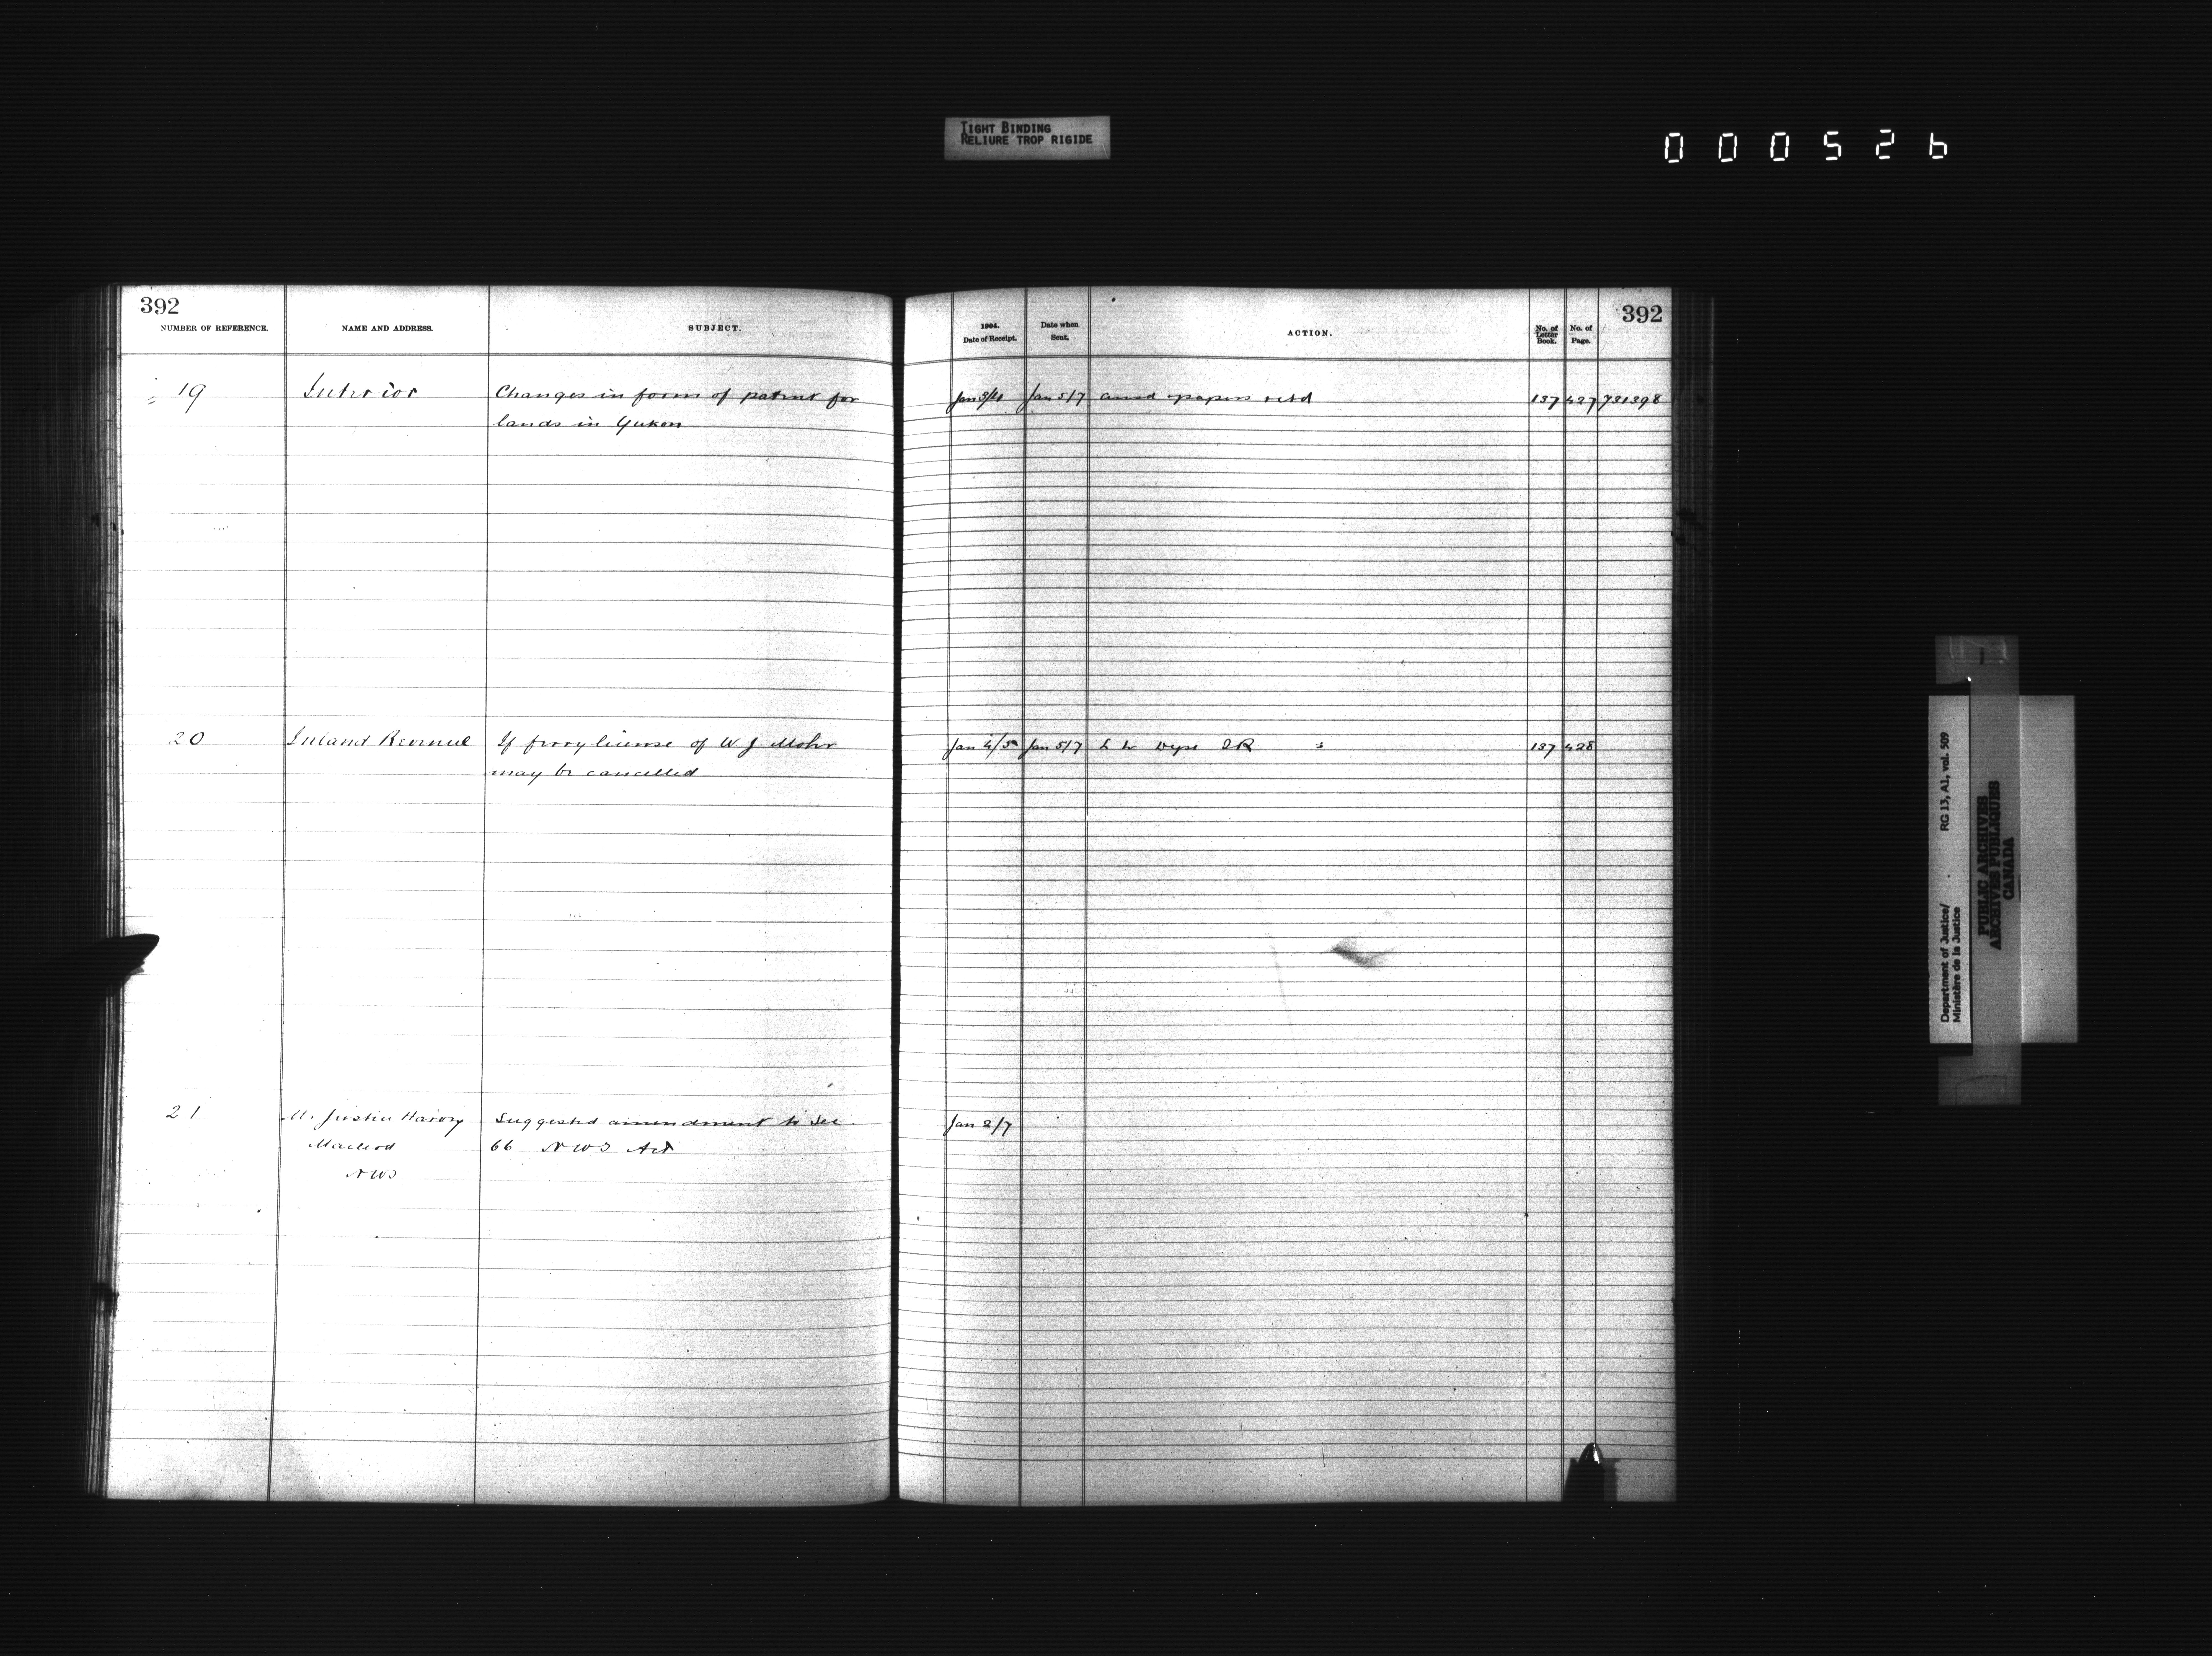 TIGHT BINDING
RELIURE TROP RIGIDE
000526
392
NUMBER OF REFERENCE.
NAME AND ADDRESS.
SUBJECT.
1904.
Date of Receipt.
Date when
Sent.
ACTION.
No. of
Letter
Book.
No. of
Page.
392
19
Interior
Changes in form of patent for
lands in Yukon
Jan 3/4
Jan 5/7
papers retd
137
427
731398
20
Inland Revenue
If ferry license of W J. Mohr
may be cancelled
Jan 4/5
Jan 5/7
IR
137
428
21
Mr Justice Harvey
Macleod
NWT
Suggested amendment to Sec
66 NWT Act
Jan 2/7
Department of Justice/
Ministère de la Justice
RG 13, A1, vol. 509
PUBLIC ARCHIVES
ARCHIVES PUBLIQUES
CANADA